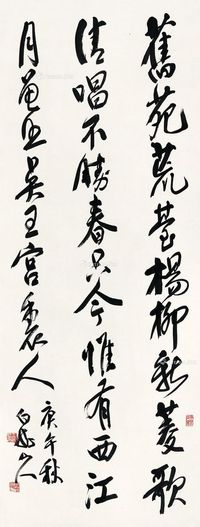 舊苑荒臺楊柳新菱歌
清唱不勝春只今惟有西江
月曾照吳王宮裏人
庚午秋